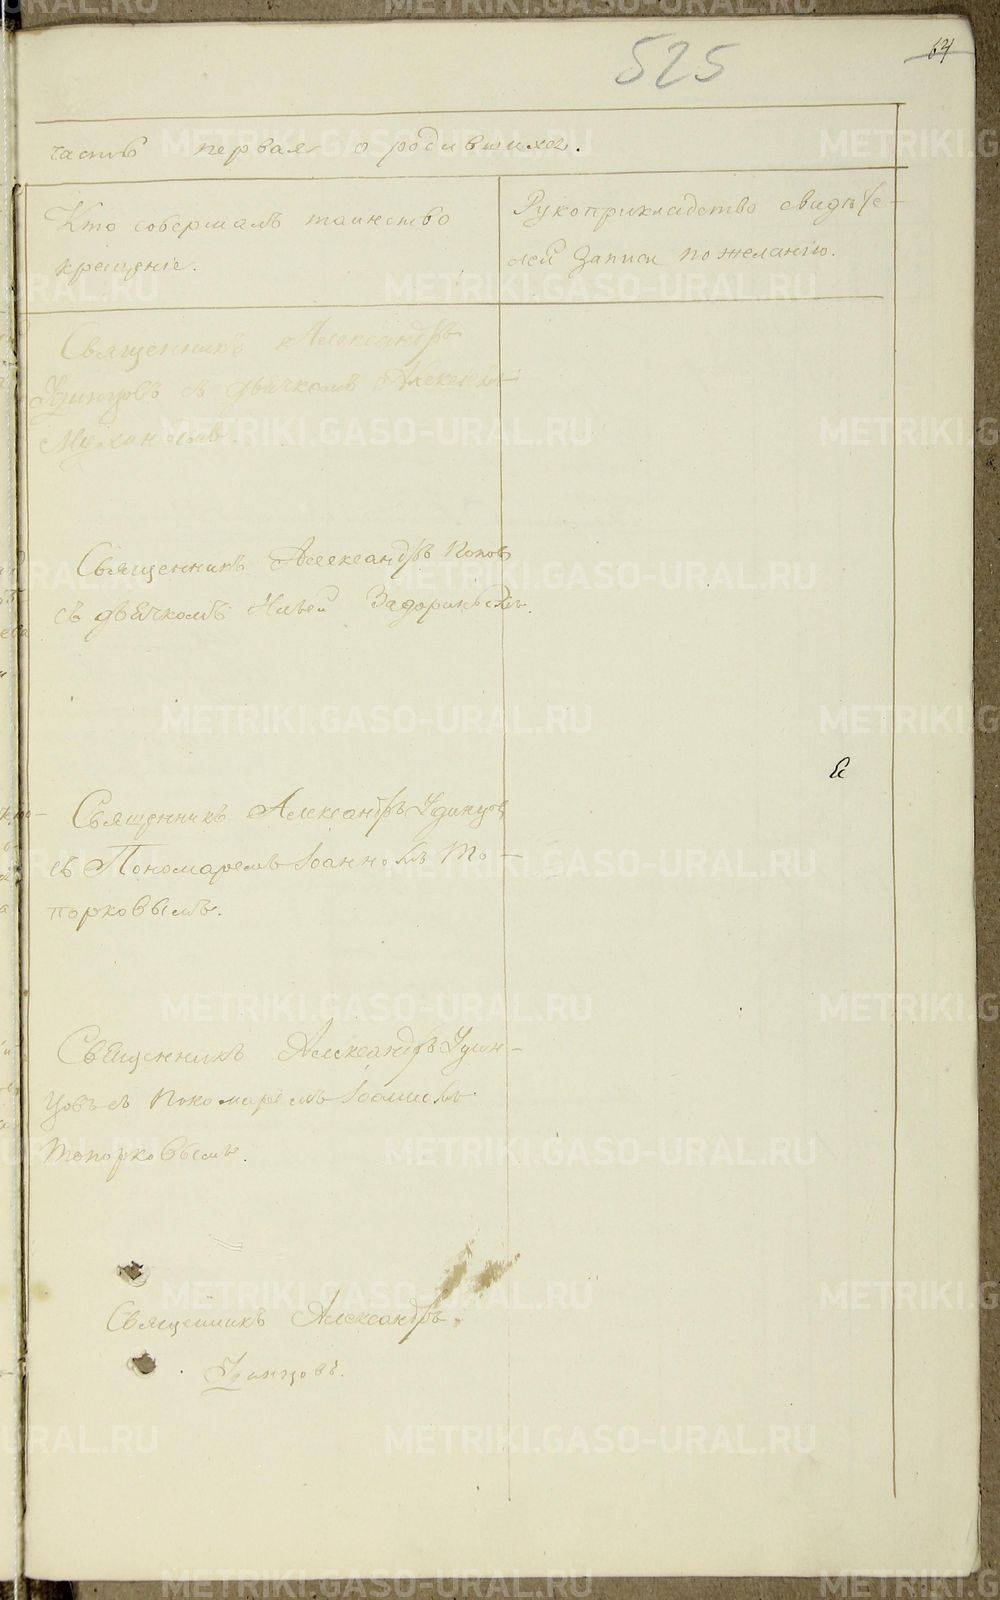 525
64
часть первая о родившихся.
Кто совершалъ таинство
крещенiе.
Рукоприкладство свидѣте-
лей записи по желанiю.
Священникъ Александръ
Удинцовъ съ дьячкомъ Алексѣем
Священникъ Александръ Попов
съ дьячкомъ Ильей Задоринымъ.
Священникъ Александръ Удинцов
съ Пономаремъ Iоанномъ То-
порковымъ.
Священникъ Александръ Удин-
цовъ съ Пономаремъ Iоанномъ
Топорковымъ.
Священникъ Александръ
Удинцовъ.
METRIKI.GASO-URAL.RU